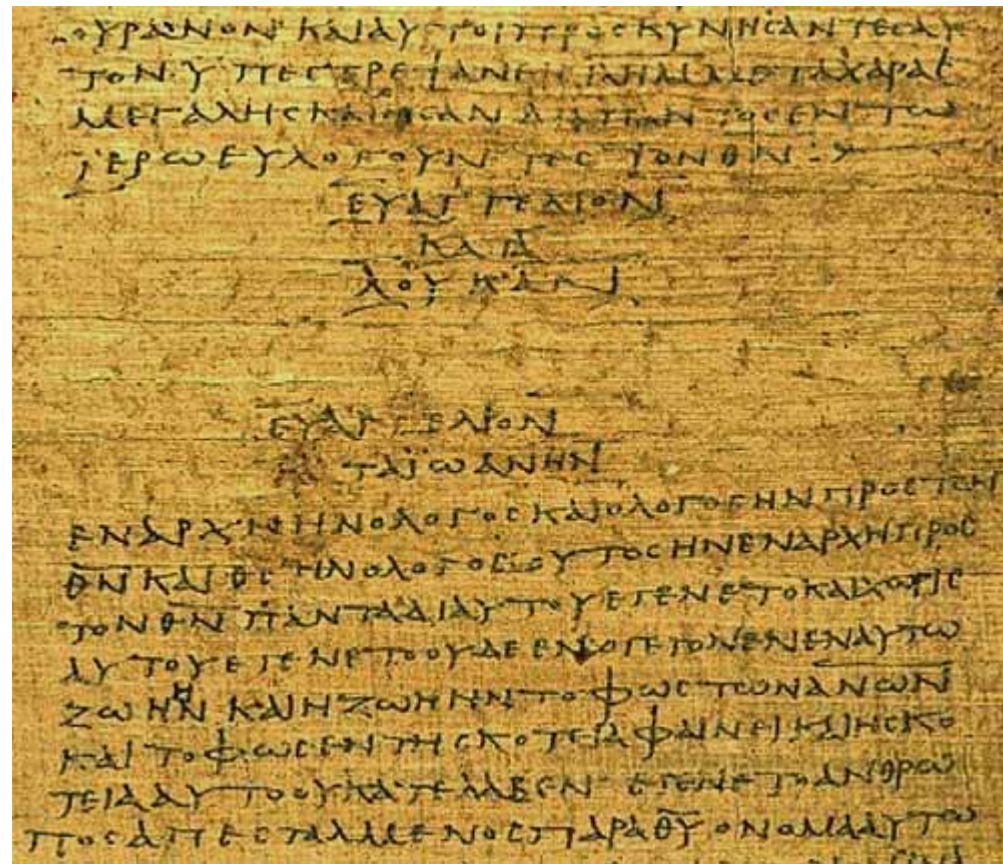 ΟΥΡΑΝΟΝ ΚΑΙ ΑΥΤΟΙ ΠΡΟϹΚΥΝΗϹΑΝΤΕϹ ΑΥ
ΤΟΝ ΥΠΕϹΤΡΕΨΑΝ ΕΙϹ ΙΛΗΜ ΜΕΤΑ ΧΑΡΑϹ
ΜΕΓΑΛΗϹ ΚΑΙ ΗϹΑΝ ΔΙΑ ΠΑΝΤΟϹ ΕΝ ΤΩ
ΙΕΡΩ ΕΥΛΟΓΟΥΝΤΕϹ ΤΟΝ Θ̅Ν̅
ΕΥΑΓΓΕΛΙΟΝ
ΚΑΤΑ
ΛΟΥΚΑΝ
ΕΥΑΓΓΕΛΙΟΝ
ΚΑΤΑ ΙΩΑΝΗΝ
ΕΝ ΑΡΧΗ ΗΝ Ο ΛΟΓΟϹ ΚΑΙ Ο ΛΟΓΟϹ ΗΝ ΠΡΟϹ ΤΟΝ
Θ̅Ν̅ ΚΑΙ Θ̅Ϲ̅ ΗΝ Ο ΛΟΓΟϹ ΟΥΤΟϹ ΗΝ ΕΝ ΑΡΧΗ ΠΡΟϹ
ΤΟΝ Θ̅Ν̅ ΠΑΝΤΑ ΔΙ ΑΥΤΟΥ ΕΓΕΝΕΤΟ ΚΑΙ ΧΩΡΙϹ
ΑΥΤΟΥ ΕΓΕΝΕΤΟ ΟΥΔΕ ΕΝ Ο ΓΕΓΟΝΕΝ ΕΝ ΑΥΤΩ
ΖΩΗ ΗΝ ΚΑΙ Η ΖΩΗ ΗΝ ΤΟ ΦΩϹ ΤΩΝ Α̅Ν̅Ω̅Ν̅
ΚΑΙ ΤΟ ΦΩϹ ΕΝ ΤΗ ϹΚΟΤΕΙΑ ΦΑΙΝΕΙ ΚΑΙ Η ϹΚΟ
ΤΕΙΑ ΑΥΤΟ ΟΥ ΚΑΤΕΛΑΒΕΝ ΕΓΕΝΕΤΟ ΑΝΘΡΩ
ΠΟϹ ΑΠΕϹΤΑΛΜΕΝΟϹ ΠΑΡΑ Θ̅Υ̅ ΟΝΟΜΑ ΑΥΤΩ